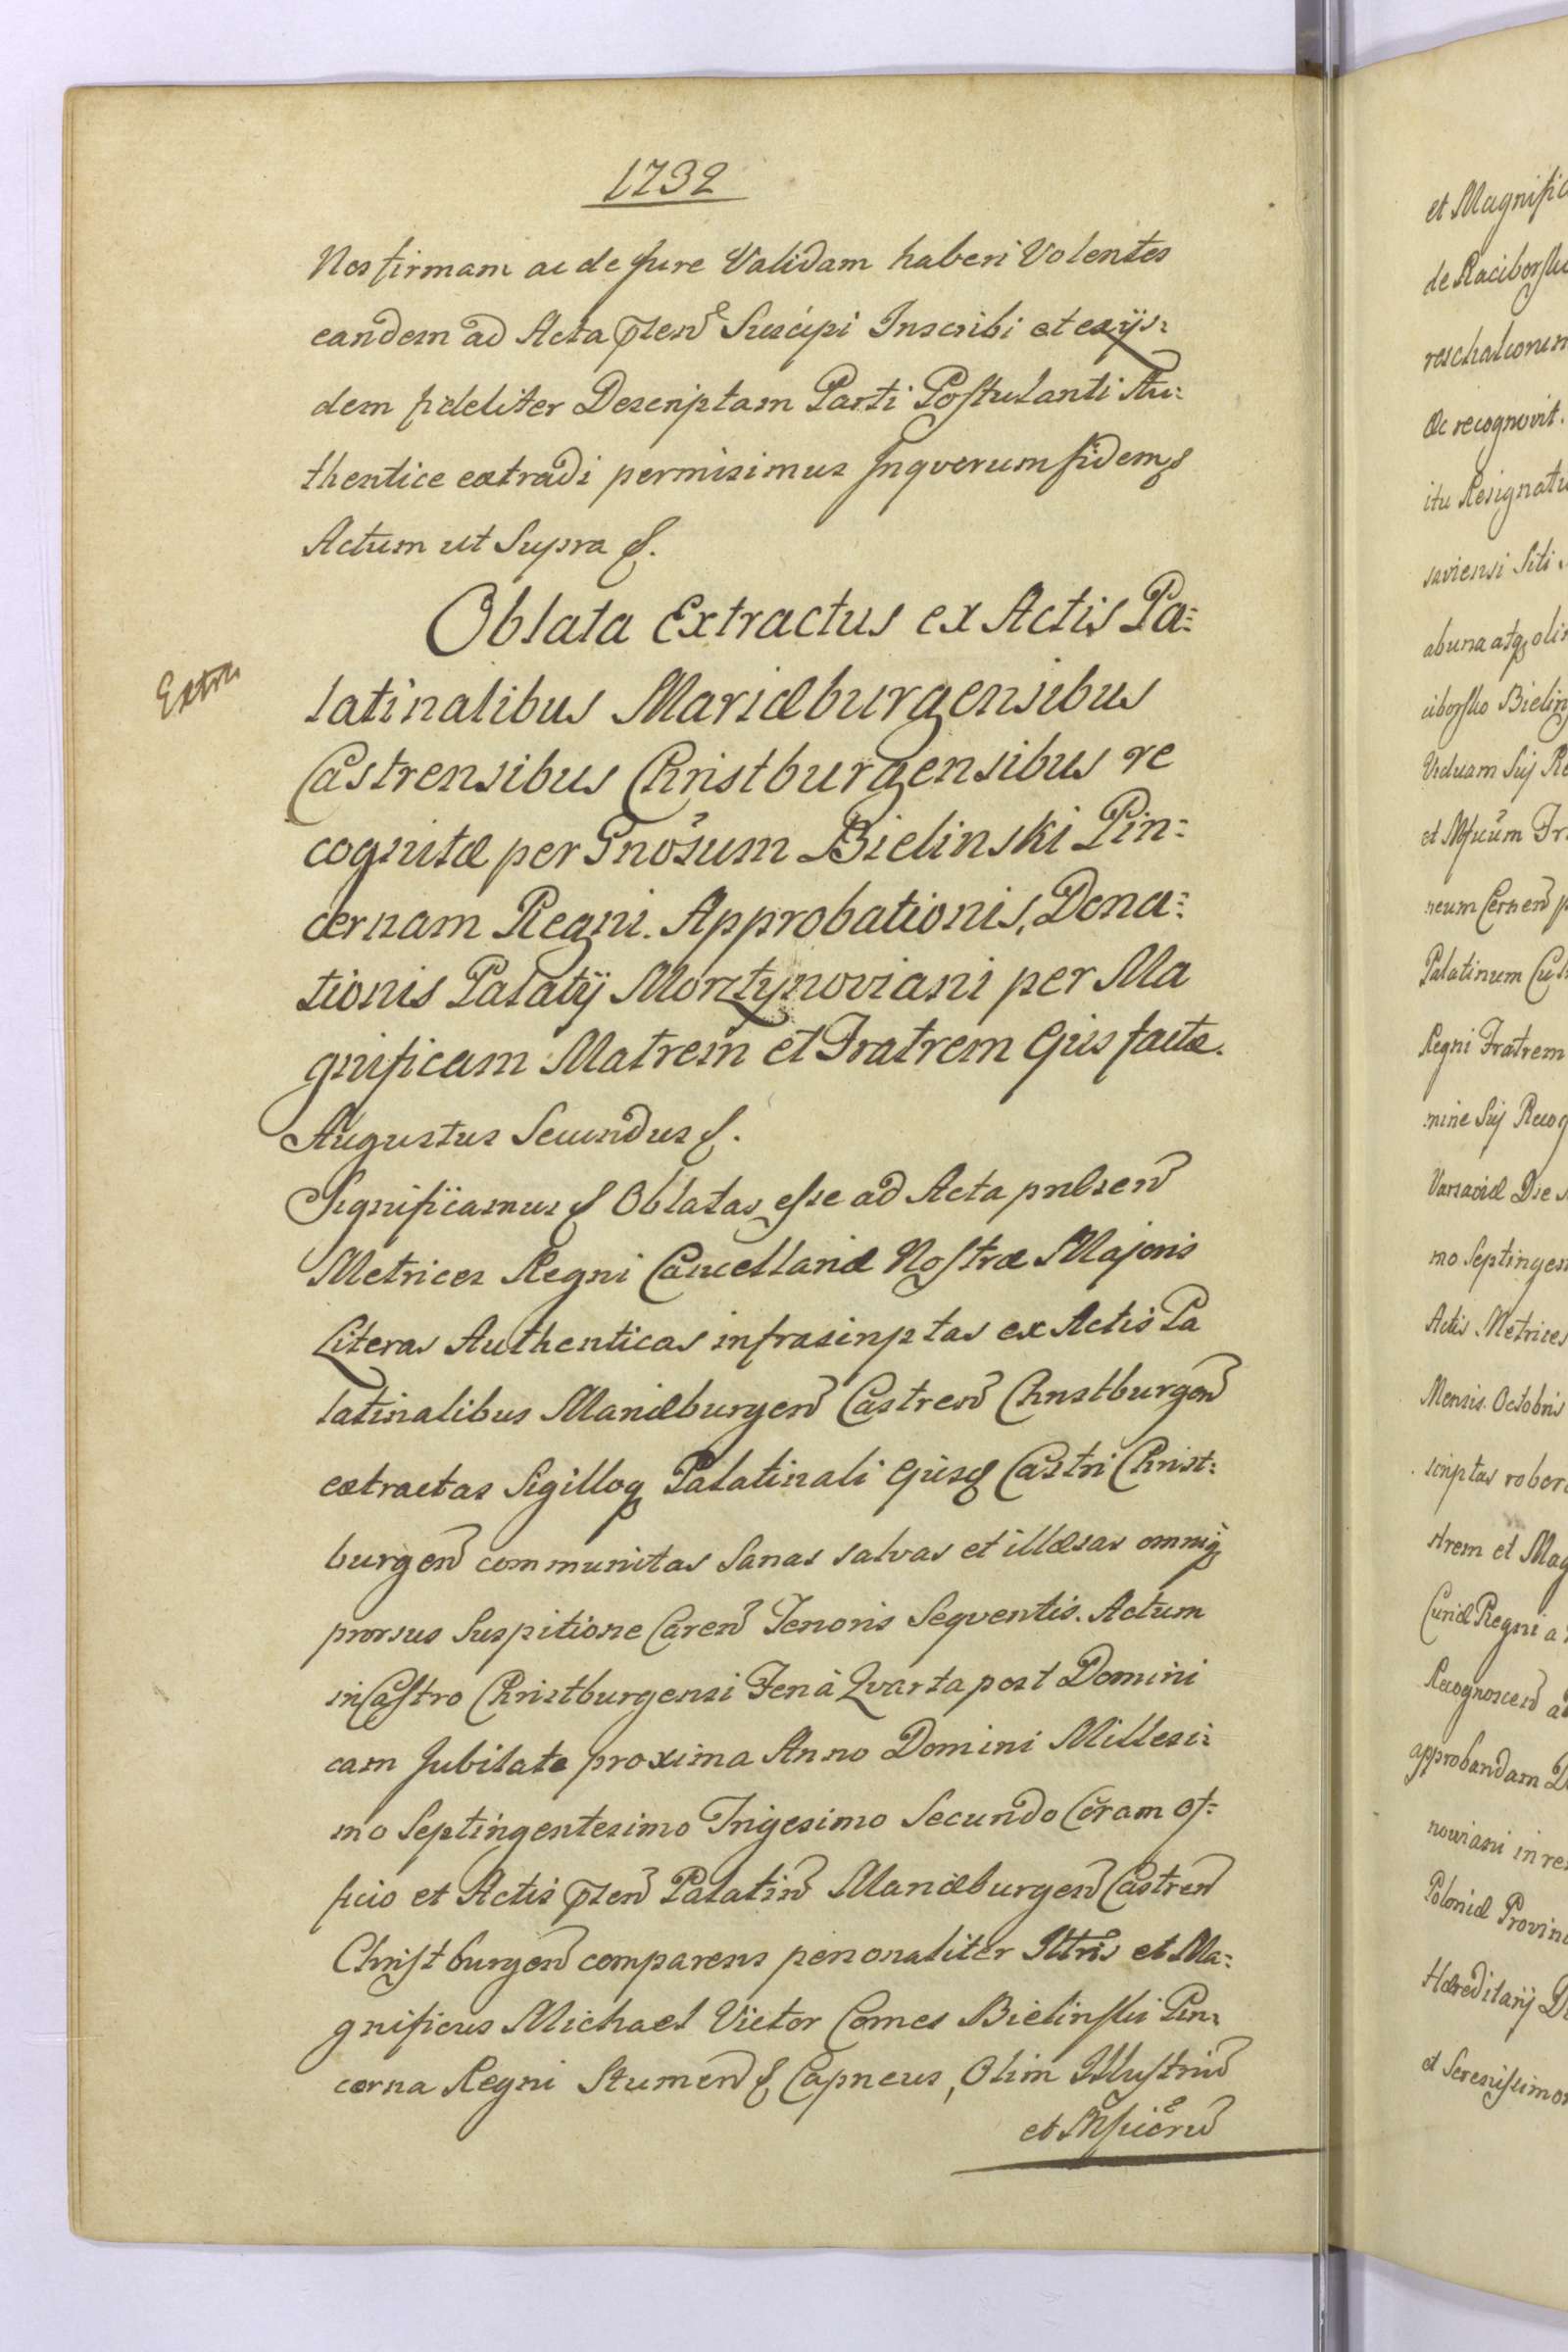 1732
Nos firmam ac de Jure Validam haberi Volentes
eandem ad Acta pzen Suscipi Inscribi et ex ijs=
dem fideliter Descriptam Parti Postulanti Au=
thentice extradi permisimus Inqverum fidem &
Actum ut Supra &.
Oblata Extractus ex Actis Pa=
Extra
latinalibus Mariæburgensibus
Castrensibus Christburgensibus re
cognitæ per Gnosum Bielinski Pin=
cernam Regni. Approbationis, Dona=
tionis Palatij Morztynoviani per Ma
gnificam Matrem et Fratrem Ejus factæ.
Augustus Secundus &.
Significamus & Oblatas esse ad Acta pnlsen
Metrices Regni Cancellariæ Nostræ Majoris
Literas Authenticas infrascriptas ex Actis Pa
latinalibus Mariæburgen Castren Christburgen
extractas Sigilloq Palatinali Ejusq Castri Christ=
burgen communitas Sanas salvas et illæsas omniq
prorsus Suspitione Caren Tenoris Seqventis. Actum
in Castro Christburgensi Feria Qvarta post Domini
cam Jubilate proxima Anno Domini Millesi=
mo Septingentesimo Trigesimo Secundo Coram of=
ficio et Actis pzen Palatin Mariæburgen Castren
Christburgen comparens personaliter Illtris et Ma=
gnificus Michael Victor Comes Bielinski Pin=
cerna Regni Stumen & Capneus, Olim Illustriu
et Mficoru
et Magnific
de Raciborsk
reschalcorum
Ac recognovit.
itu Resignatu
saviensi Siti
abuna atq olim
ciborsko Bielin
Viduam Sui Re
et Mficum Fr
neum Cernen p
Palatinum Cul
Regni Fratrem
mine Sui Recog
Varsaviæ Die
mo Septingen
Actis Metrices
Mensis Octobris
scriptas robor
trem et Mag
Curiæ Regni a
Recognoscen a
approbandam D
noviani in re
Poloniæ Provin
Hæreditarij D
et Serenissimo